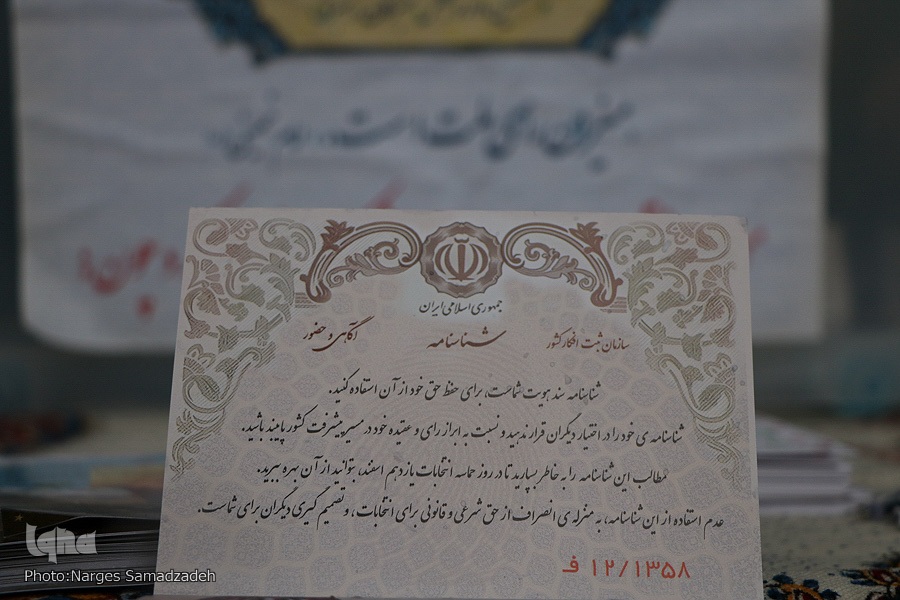 میزان رأی ملت است
جوان را
جمهوری اسلامی ایران
سازمان ثبت افکار کشور
شناسنامه
آگاهی و حضور
شناسنامه سند هویت شماست، برای حفظ حق خود از آن استفاده کنید.
شناسنامه ی خود را در اختیار دیگران قرار ندهید و نسبت به ابراز رای و عقیده خود در مسیر پیشرفت کشور پایبند باشید.
مطالب این شناسنامه را به خاطر بسپارید تا در روز حماسه انتخابات یازدهم اسفند، بتوانید از آن بهره ببرید.
عدم استفاده از این شناسنامه، به منزله ی انصراف از حق شرعی و قانونی برای انتخابات ، و تصمیم گیری دیگران برای شماست.
۱۲/۱۳۵۸ ف
iqna
Photo:Narges Samadzadeh